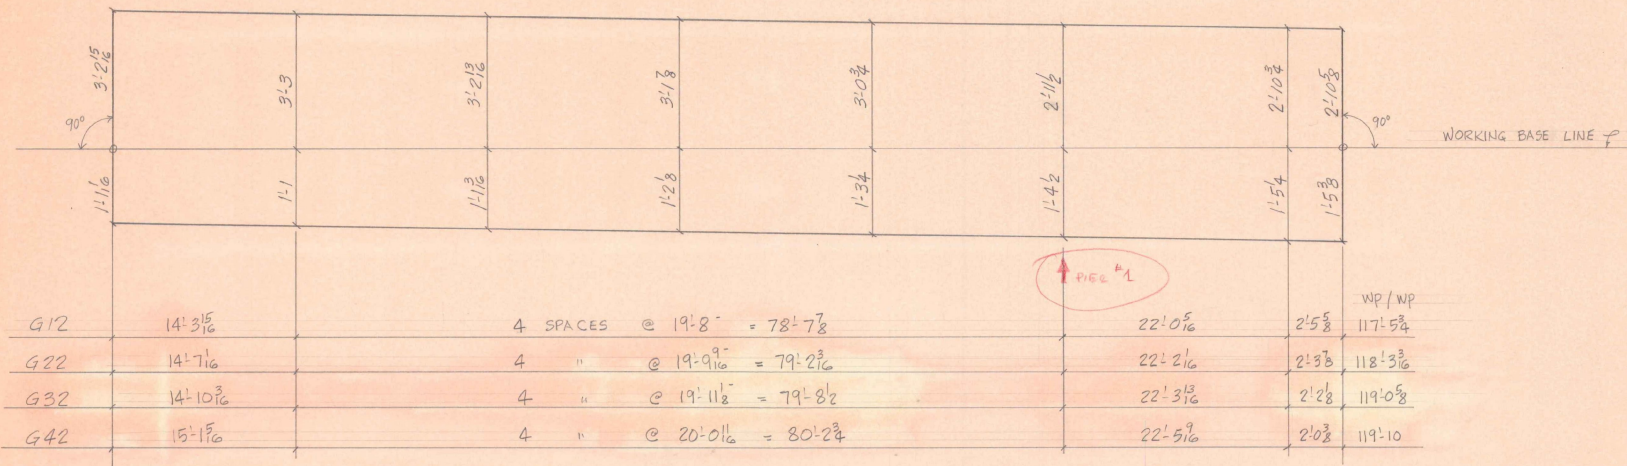 3'-2 15/16 3'-3 3'-2 13/16 3'-1 7/8 3'-0 3/4 2'-11 1/2 2'-10 3/4 2'-10 5/8
90° 90°
WORKING BASE LINE
1'-1 1/16 1'-1 1'-1 3/16 1'-2 1/8 1'-3 1/4 1'-4 1/2 1'-5 1/4 1'-5 3/8
PIER #1
WP/WP
G12 14'-3 15/16 4 SPACES @ 19'-8⁻ = 78'-7 7/8 22'-0 5/16 2'-5 5/8 117'-5 3/4
G22 14'-7 1/16 4 " @ 19'-9 9/16⁻ = 79'-2 3/16 22'-2 1/16 2'-3 7/8 118'-3 3/16
G32 14'-10 3/16 4 " @ 19'-11 1/8⁻ = 79'-8 1/2 22'-3 13/16 2'-2 1/8 119'-0 5/8
G42 15'-1 5/16 4 " @ 20'-0 11/16 = 80'-2 3/4 22'-5 9/16 2'-0 3/8 119'-10